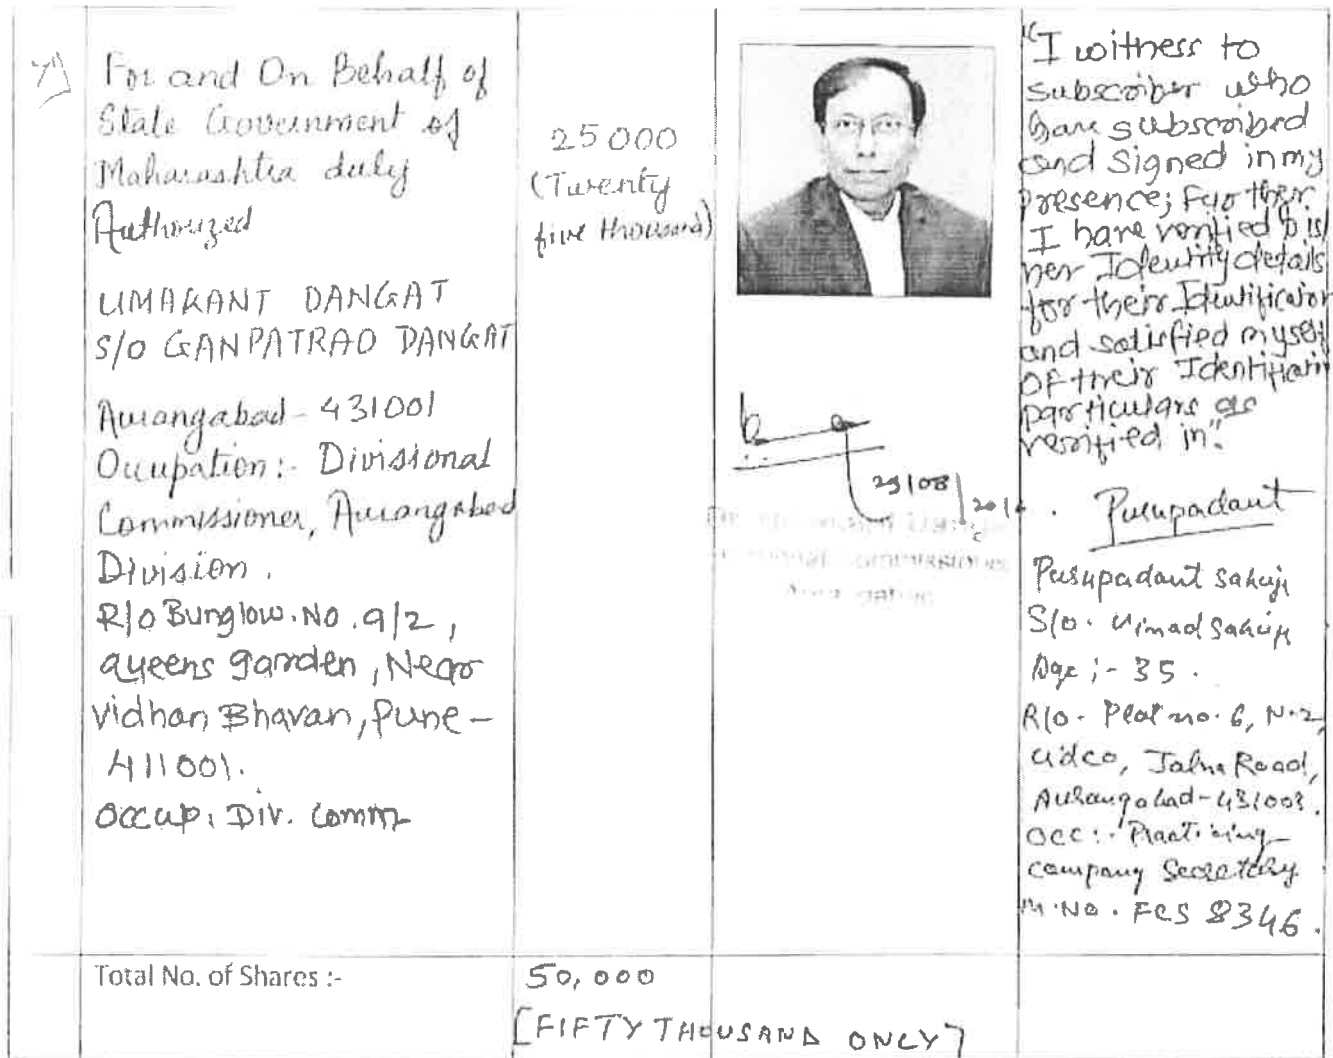 7)
For and On Behalf of
State Government of
Maharashtra duly
Authorized
UMAKANT DANGAT
S/O GANPATRAO DANGAT
Aurangabad - 431001
Occupation:- Divisional
Commissioner, Aurangabad
Division.
R/o Bunglow.No.9/2,
queens garden, Near
Vidhan Bhavan, Pune-
411001.
Occup: Div. Comm
25000
(Twenty
five thousand)
29/08/201
"I witness to
subscriber who
have subscribed
and signed in my
presence; further
I have verified his/
her Identity details
for their Identification
and satisfied myself
OF their Identification
particulars as
verified in".
Pusupadaut
Pusupadaut sahuji
S/o. Vimad sahuji
Age :- 35.
R/o. Plot no. 6, N-2,
cidco, Jalna Road,
Aurangabad-431003.
OCC:- Practising
company Secretary
M.No. FCS 8346.
Total No. of Shares :-
50,000
[FIFTY THOUSAND ONLY]